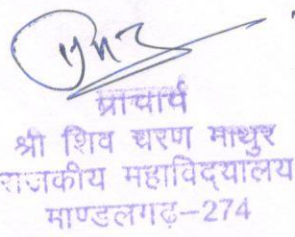 प्राचार्य
श्री शिव चरण माथुर
राजकीय महाविद्यालय
माण्डलगढ़–274